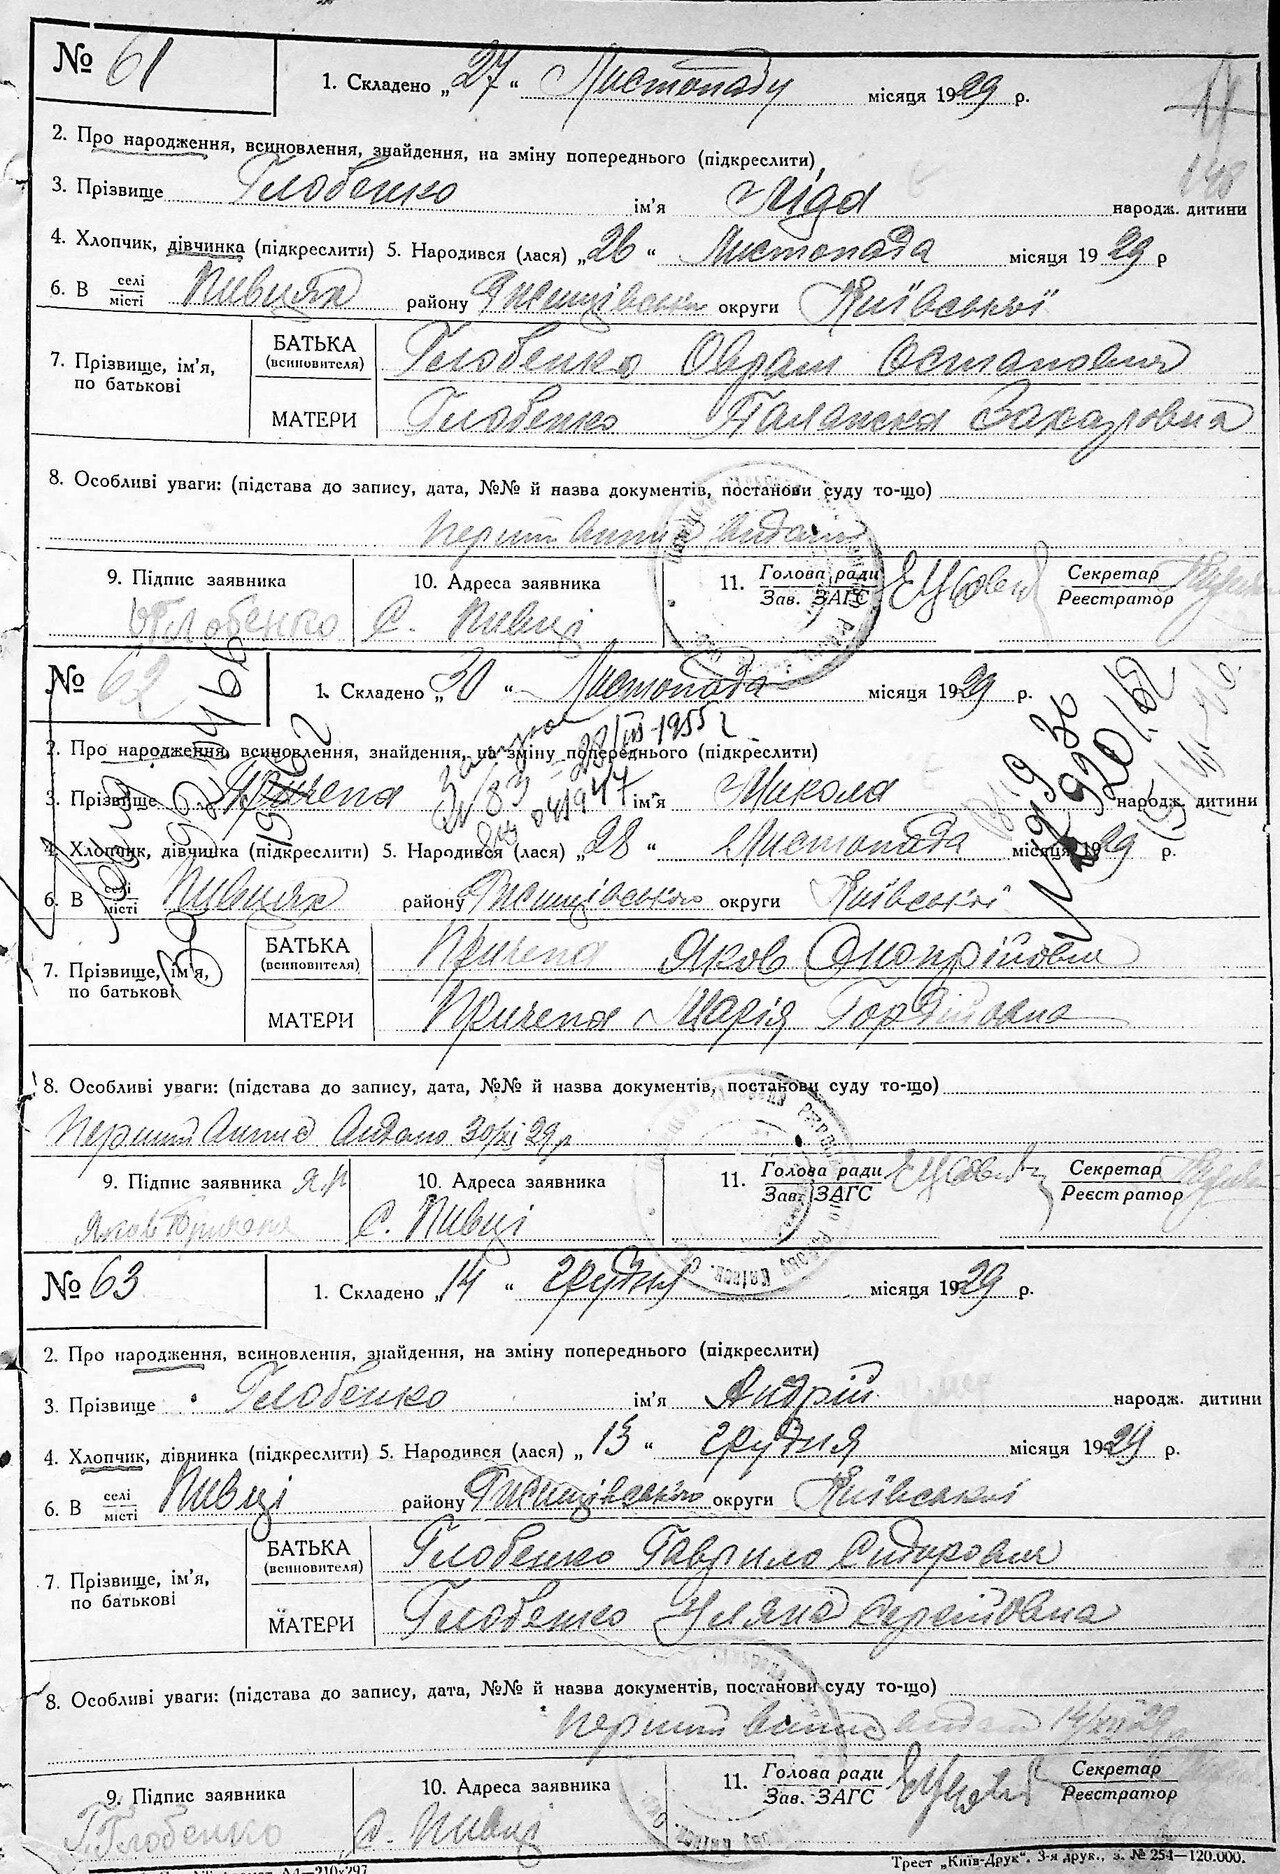 № 61
1. Складено „27“ Листопаду місяця 1929 р.
148
2. Про народження, всиновлення, знайдення, на зміну попереднього (підкреслити)
3. Прізвище Глобенко ім'я Ліда народж. дитини
4. Хлопчик, дівчинка (підкреслити) 5. Народився (лася) „26“ Листопада місяця 1929 р
6. В селі місті Пивцях району Ржищівськ округи Київської
7. Прізвище, ім'я, по батькові
БАТЬКА (всиновителя) Глобенко Оврам Остапович
МАТЕРИ Глобенко Палажка Захаровна
8. Особливі уваги: (підстава до запису, дата, №№ й назва документів, постанови суду то-що)
перший видано
9. Підпис заявника 10. Адреса заявника 11. Голова ради Зав. ЗАГС Секретар Реєстратор
Глобенко с. Пивці
№ 62
1. Складено „30“ Листопада місяця 1929 р.
2. Про народження, всиновлення, знайдення, на зміну попереднього (підкреслити)
№ 83 28/III-1955 г
3. Прізвище Причепа ім'я Микола народж. дитини
041947
№ 920/62
1962
4. Хлопчик, дівчинка (підкреслити) 5. Народився (лася) „28“ Листопада місяця 1929 р.
6. В селі місті Пивцях району Ржищівського округи Київської
7. Прізвище, ім'я, по батькові
БАТЬКА (всиновителя) Причепа Яков Онопрійович
МАТЕРИ Причепа Марія Гордійовна
8. Особливі уваги: (підстава до запису, дата, №№ й назва документів, постанови суду то-що)
Перший видано 30/XI 29 р
9. Підпис заявника 10. Адреса заявника 11. Голова ради Зав. ЗАГС Секретар Реєстратор
Яков с. Пивці
№ 63
1. Складено „14“ грудня місяця 1929 р.
2. Про народження, всиновлення, знайдення, на зміну попереднього (підкреслити)
3. Прізвище Глобенко ім'я Андрій умер народж. дитини
4. Хлопчик, дівчинка (підкреслити) 5. Народився (лася) „13“ грудня місяця 1929 р.
6. В селі місті Пивці району Ржищівського округи Київської
7. Прізвище, ім'я, по батькові
БАТЬКА (всиновителя) Глобенко Гаврило Сидорович
МАТЕРИ Глобенко Уляна Сергійовна
8. Особливі уваги: (підстава до запису, дата, №№ й назва документів, постанови суду то-що)
перший видан 14/XII 29 р
9. Підпис заявника 10. Адреса заявника 11. Голова ради Зав. ЗАГС Секретар Реєстратор
Г. Глобенко с. Пивці
А4—210х297
Трест „Київ-Друк“. 3-я друк., з. № 254—120.000.